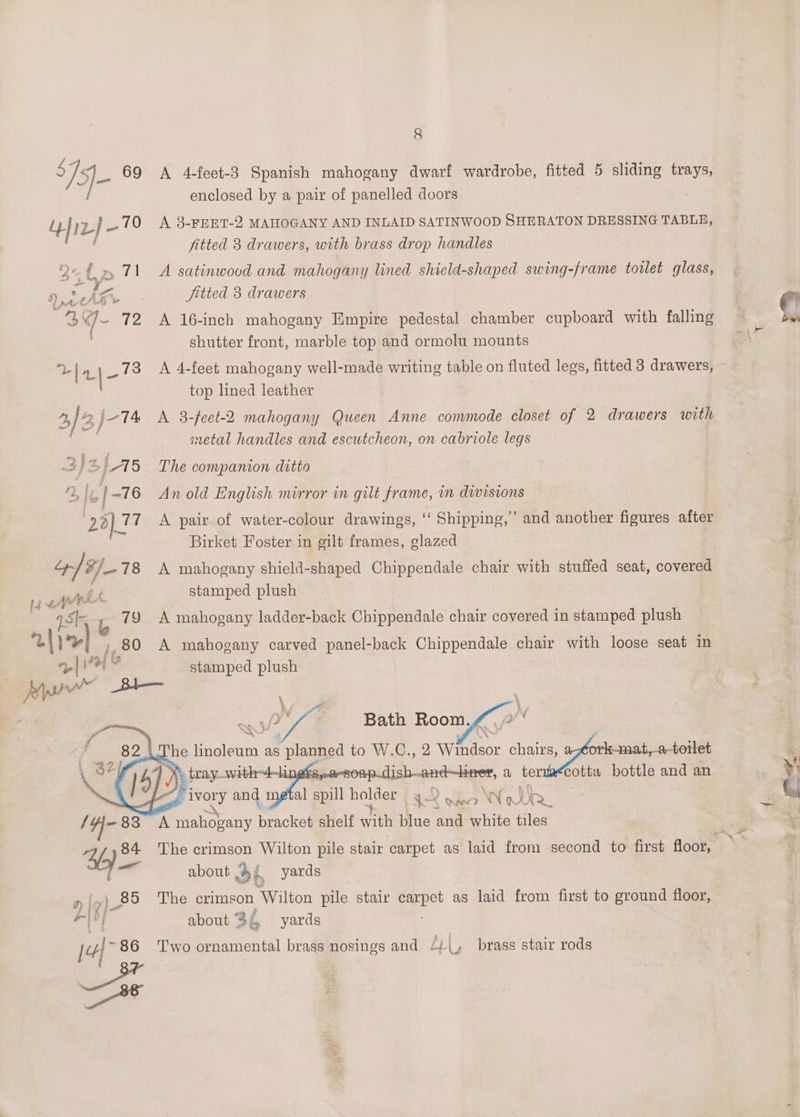 8
69 A 4-feet-3 Spanish mahogany dwarf wardrobe, fitted 5 sliding trays,
enclosed by a pair of panelled doors
4/12/- 70 A 3-FEET-2 MAHOGANY AND INLAID SATINWOOD SHERATON DRESSING TABLE,
fitted 3 drawers, with brass drop handles
71 A satinwood and mahogany lined shield-shaped swing-frame toilet glass,
fitted 3 drawers
72 A 16-inch mahogany Empire pedestal chamber cupboard with falling
shutter front, marble top and ormolu mounts
73 A 4-feet mahogany well-made writing table on fluted legs, fitted 3 drawers,
top lined leather
74 A 3-feet-2 mahogany Queen Anne commode closet of 2 drawers with
metal handles and escutcheon, on cabriole legs
75 The companion ditto
76 An old English mirror in gilt frame, in divisions
77 A pair of water-colour drawings, “Shipping,” and another figures after
Birket Foster in gilt frames, glazed
78 A mahogany shield-shaped Chippendale chair with stuffed seat, covered
stamped plush
79 A mahogany ladder-back Chippendale chair covered in stamped plush
80 A mahogany carved panel-back Chippendale chair with loose seat in
stamped plush
81
Bath Room.
82 The linoleum as planned to W.C., 2 Windsor chairs, a cork mat, a toilet
tray with 4 a soap dish and liner, a terra cotta bottle and an
ivory and metal spill holder
14/- 83 A mahogany bracket shelf with blue and white tiles
84 The crimson Wilton pile stair carpet as laid from second to first floor,
about yards
85 The crimson Wilton pile stair carpet as laid from first to ground floor,
about yards
14/- 86 Two ornamental brass nosings and brass stair rods
87
88